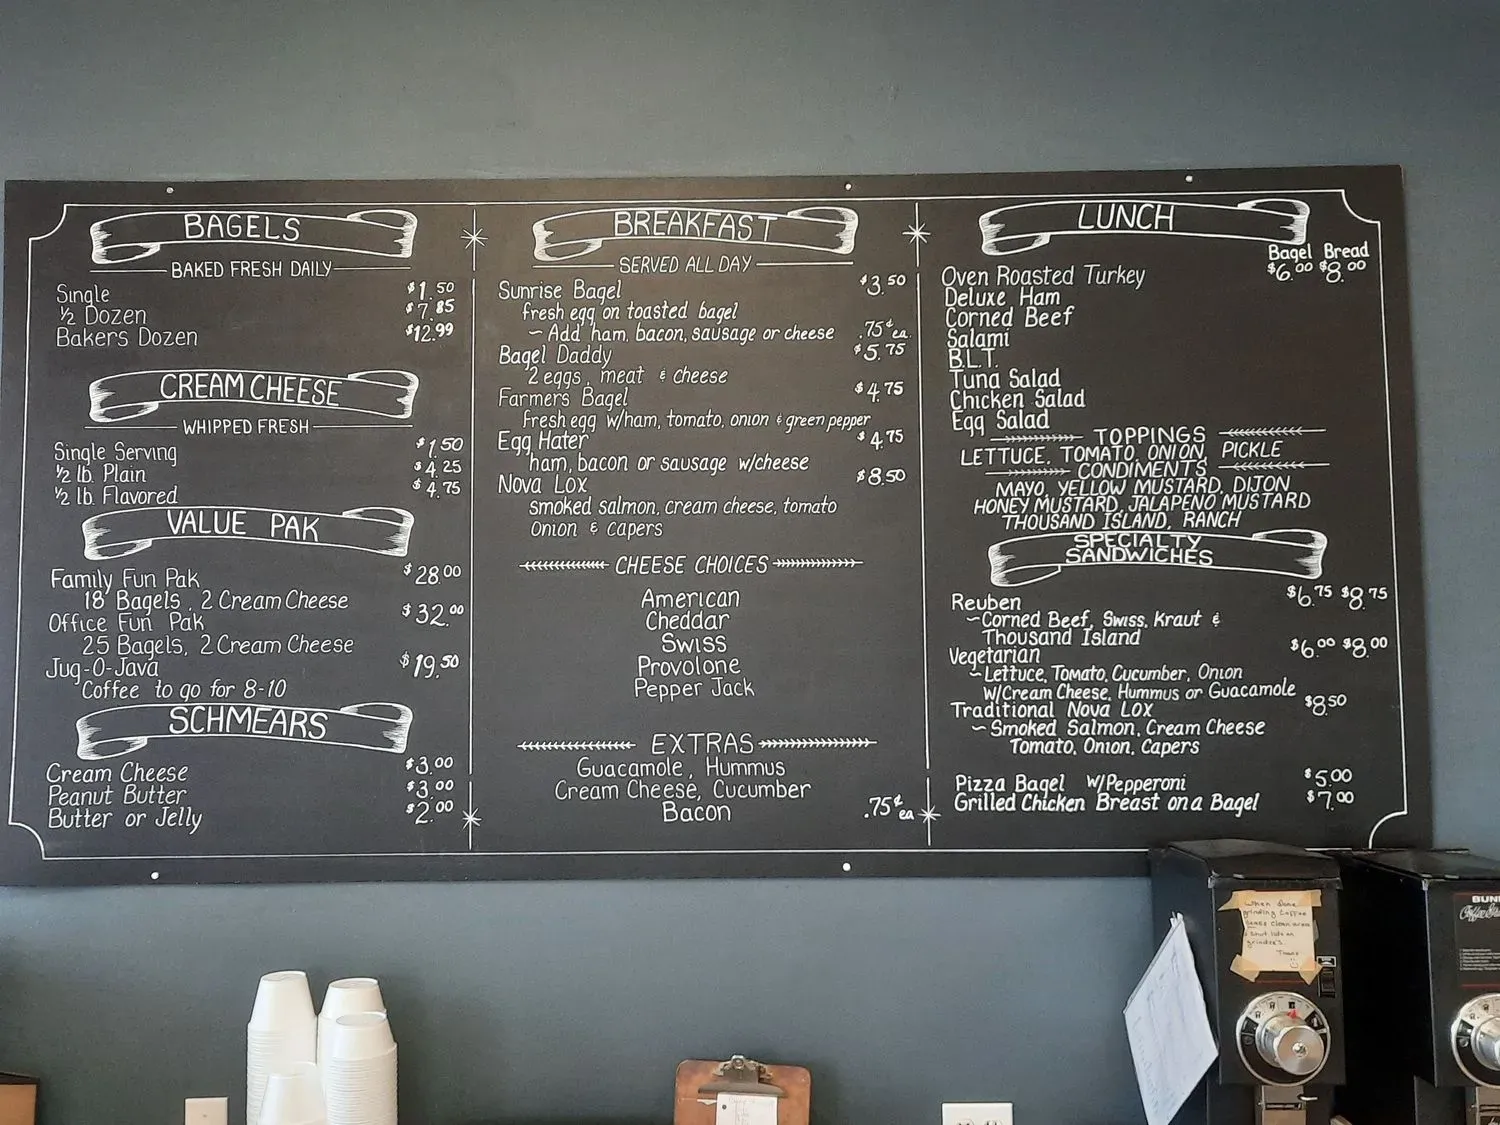 BAGELS
BAKED FRESH DAILY
Single $1.50
½ Dozen $7.85
Bakers Dozen $12.99
CREAM CHEESE
WHIPPED FRESH
Single Serving $1.50
½ lb. Plain $4.25
½ lb. Flavored $4.75
VALUE PAK
Family Fun Pak $28.00
18 Bagels, 2 Cream Cheese
Office Fun Pak $32.00
25 Bagels, 2 Cream Cheese
Jug-O-Java $19.50
Coffee to go for 8-10
SCHMEARS
Cream Cheese $3.00
Peanut Butter $3.00
Butter or Jelly $2.00
BREAKFAST
SERVED ALL DAY
Sunrise Bagel $3.50
fresh egg on toasted bagel
~ Add ham, bacon, sausage or cheese .75¢ ea.
Bagel Daddy $5.75
2 eggs, meat & cheese
Farmers Bagel $4.75
Fresh egg w/ham, tomato, onion & green pepper
Egg Hater $4.75
ham, bacon or sausage w/cheese
Nova Lox $8.50
smoked salmon, cream cheese, tomato
Onion & capers
CHEESE CHOICES
American
Cheddar
Swiss
Provolone
Pepper Jack
EXTRAS
Guacamole, Hummus
Cream Cheese, Cucumber
Bacon .75¢ ea
LUNCH
Bagel Bread
Oven Roasted Turkey $6.00 $8.00
Deluxe Ham
Corned Beef
Salami
B.L.T.
Tuna Salad
Chicken Salad
Egg Salad
TOPPINGS
LETTUCE, TOMATO, ONION, PICKLE
CONDIMENTS
MAYO, YELLOW MUSTARD, DIJON
HONEY MUSTARD, JALAPENO MUSTARD
THOUSAND ISLAND, RANCH
SPECIALTY
SANDWICHES
Reuben $6.75 $8.75
~Corned Beef, Swiss, Kraut &
Thousand Island
Vegetarian $6.00 $8.00
~Lettuce, Tomato, Cucumber, Onion
W/Cream Cheese, Hummus or Guacamole
Traditional Nova Lox $8.50
~ Smoked Salmon, Cream Cheese
Tomato, Onion, Capers
Pizza Bagel W/Pepperoni $5.00
Grilled Chicken Breast on a Bagel $7.00
When done
grinding coffee
clean area
grinder's
BUNN